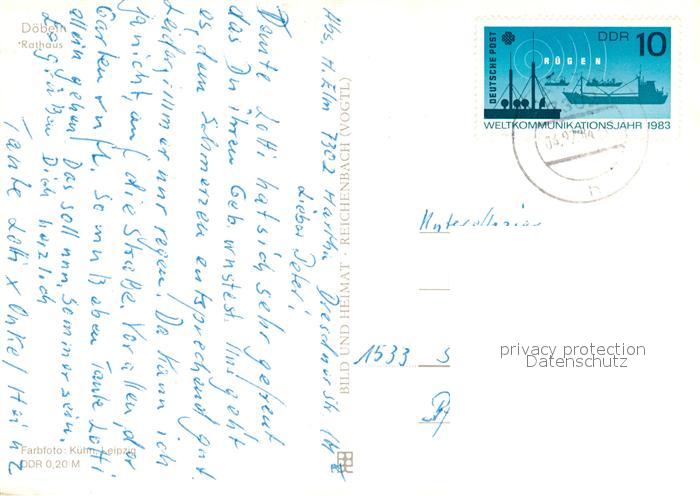 Döbeln
Rathaus
Abs. H. Elm 7302 Hartha Dresdner Str.
Lieber Peter!
Tante Lotti hat sich sehr gefreut
das Du ihren Geb. wustest. Uns geht
es, dem Schmerzen entsprechend gut.
Leider immer nur regen. Da kann ich
ja nicht auf die Straße. Vor allen, der
Garten ruft. So muß eben Tante Lotti
allein gehen. Das soll nun Sommer sein.
Es grüßen Dich herzlich
Tante Lotti x Onkel Heinz
Farbfoto: Kühn, Leipzig
DDR 0,20 M
BILD UND HEIMAT · REICHENBACH (VOGTL)
DEUTSCHE POST
DDR 10
RÜGEN
WELTKOMMUNIKATIONSJAHR 1983
1533 S
privacy protection
Datenschutz